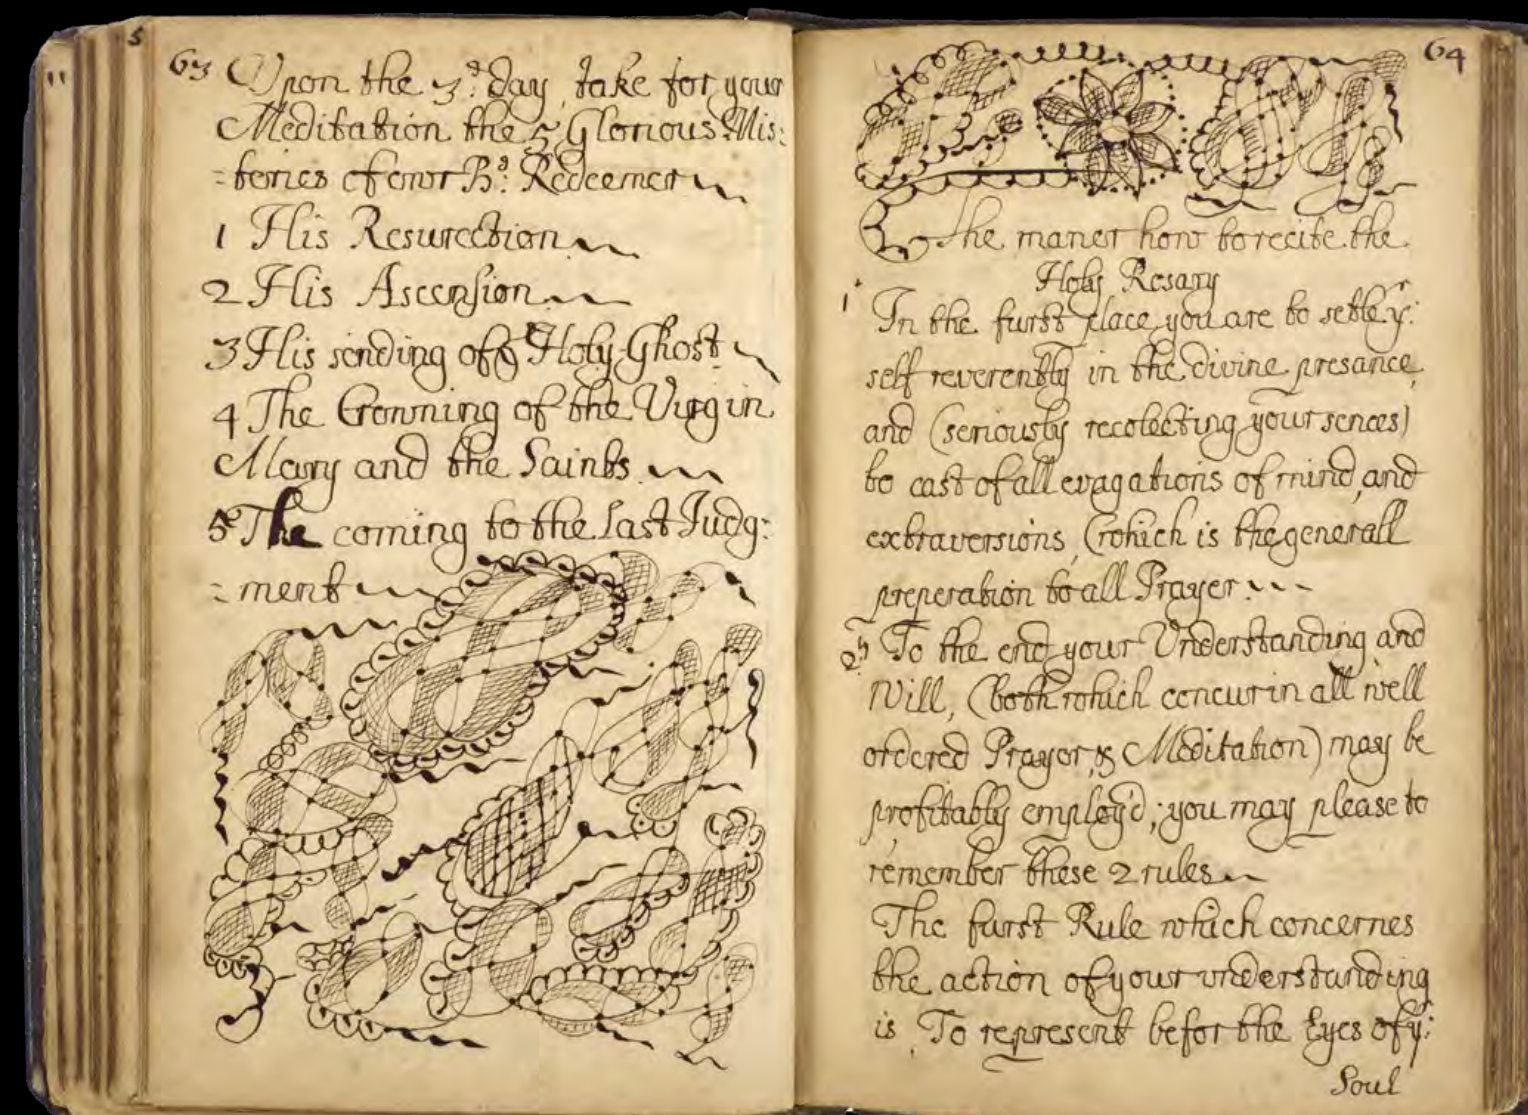 63
Upon the 3d: day, take for your
Meditation the 5 Glorious Mis:
=teries of our Bd: Redeemer
1 His Resurection
2 His Ascension
3 His sending of ye Holy Ghost
4 The Crowning of the Virgin
Mary and the Saints
5 The coming to the last Judg:
=ment
64
The maner how to recite the
Holy Rosary
1 In the furst place you are to setle yr:
self reverently in the divine presance,
and (seriously recolecting your sences)
to cast of all evagations of mind, and
extraversions, (which is the generall
preperation to all Prayer
2ly To the end your Understanding and
Will, (both which concur in all well
ordered Prayer, & Meditation) may be
profitably employ'd; you may please to
remember these 2 rules
The furst Rule which concernes
the action of your understanding
is, To represent befor the Eyes of yr:
Soul
5
11